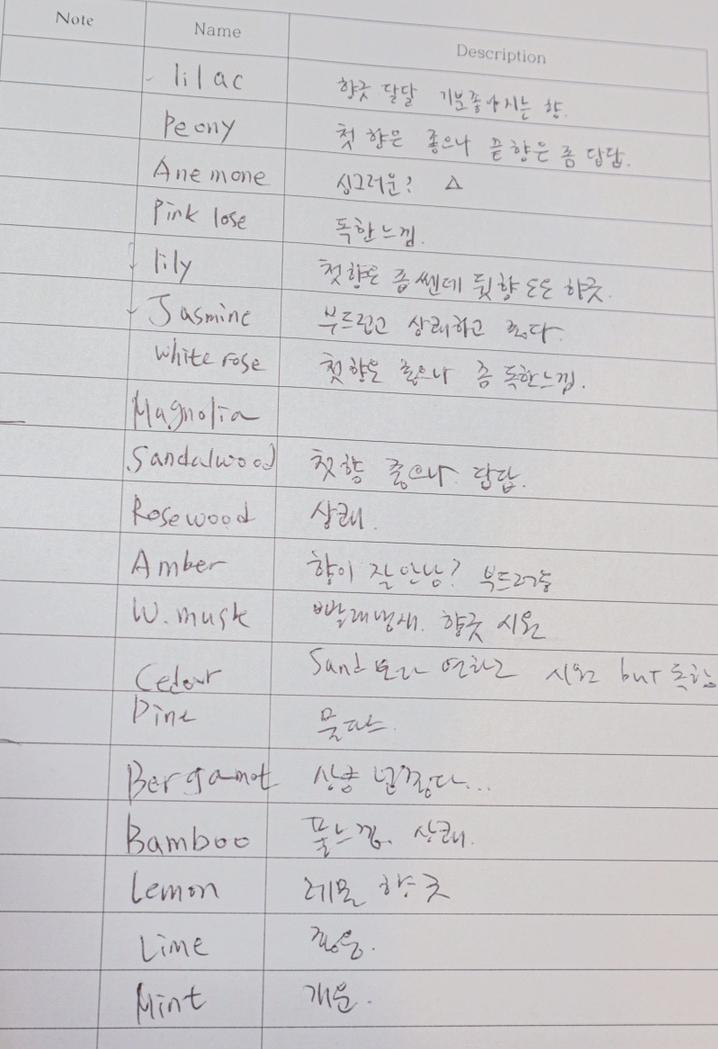 Note Name Description
lilac 향긋 달달 기분좋아지는 향.
Peony 첫 향은 좋으나 끝향은 좀 답답.
Anemone 싱그러운? △
Pink lose 독한느낌.
lily 첫향은 좀 쎈데 뒷향은 향긋.
Jasmine 부드럽고 상쾌하고 좋다.
White rose 첫향은 좋으나 좀 독한느낌.
Magnolia
Sandalwood 첫향 좋으나 답답.
Rosewood 상쾌.
Amber 향이 잘안남? 부드러움
W. musk 빨래냄새. 향긋 시원
Cedour Sand 보다 연하고 시원 but 독함
Pine
Bergamot 상큼
Bamboo 풀느낌. 상쾌.
Lemon 레몬 향긋
Lime 좋음.
Mint 개운.